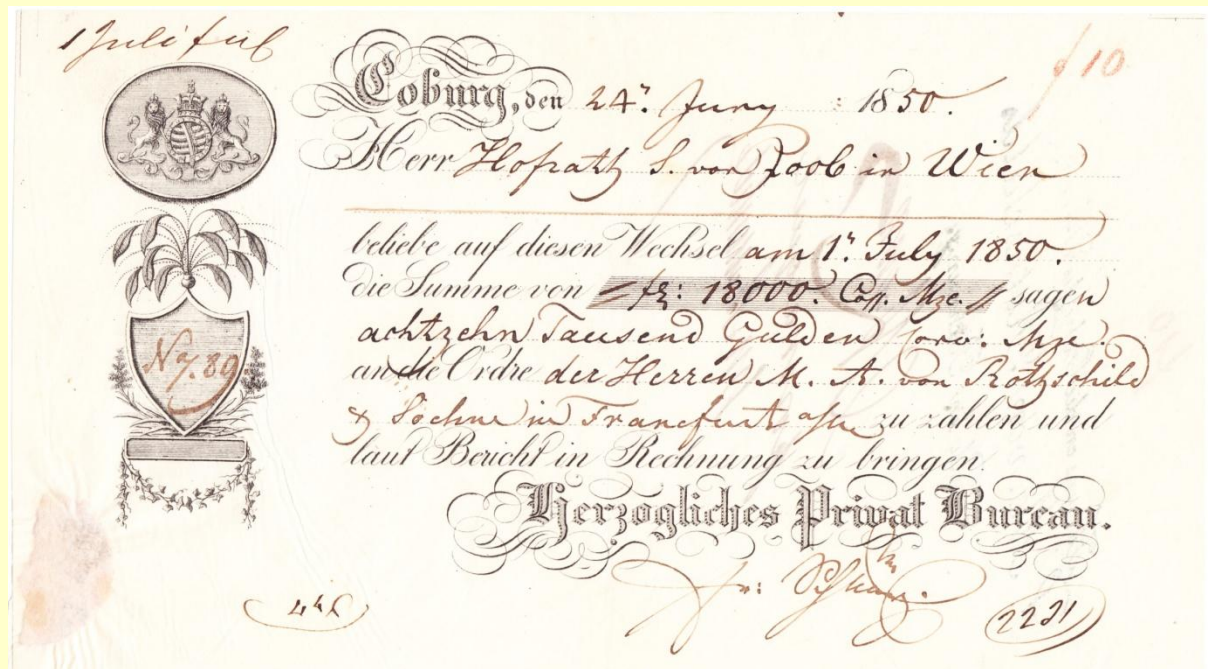 1 Juli
f 10
Coburg, den 24r. Juny 1850.
Herr Hofrath S. von Zoob in Wien
beliebe auf diesen Wechsel am 1r. July 1850.
die Summe von 18000. Mze. sagen
achtzehn Tausend Gulden Conv: Mze.
an die Ordre der Herren M. A. von Rothschild
& Soehne in Francfurt a/m zu zahlen und
laut Bericht in Rechnung zu bringen.
Herzogliches Privat Bureau.
No. 89
2221